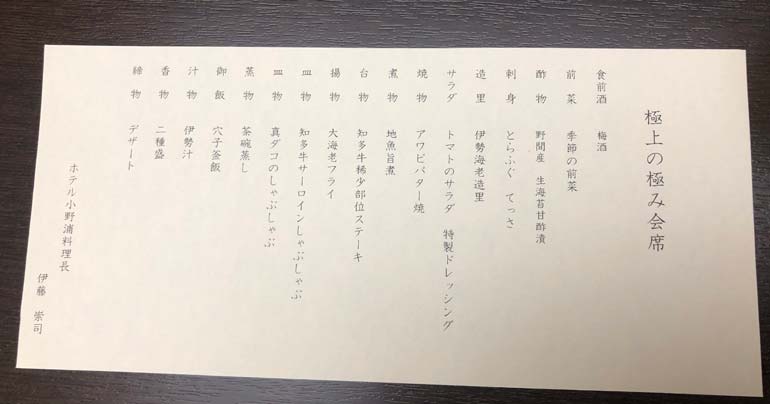 極上の極み会席
食前酒 梅酒
前菜 季節の前菜
酢物 野間産 生海苔甘酢漬
刺身 とらふぐ てっさ
造里 伊勢海老造里
サラダ トマトのサラダ 特製ドレッシング
焼物 アワビバター焼
煮物 地魚旨煮
台物 知多牛稀少部位ステーキ
揚物 大海老フライ
皿物 知多牛サーロインしゃぶしゃぶ
皿物 真ダコのしゃぶしゃぶ
蒸物 茶碗蒸し
御飯 穴子釜飯
汁物 伊勢汁
香物 二種盛
締物 デザート
ホテル小野浦料理長
伊藤 崇司